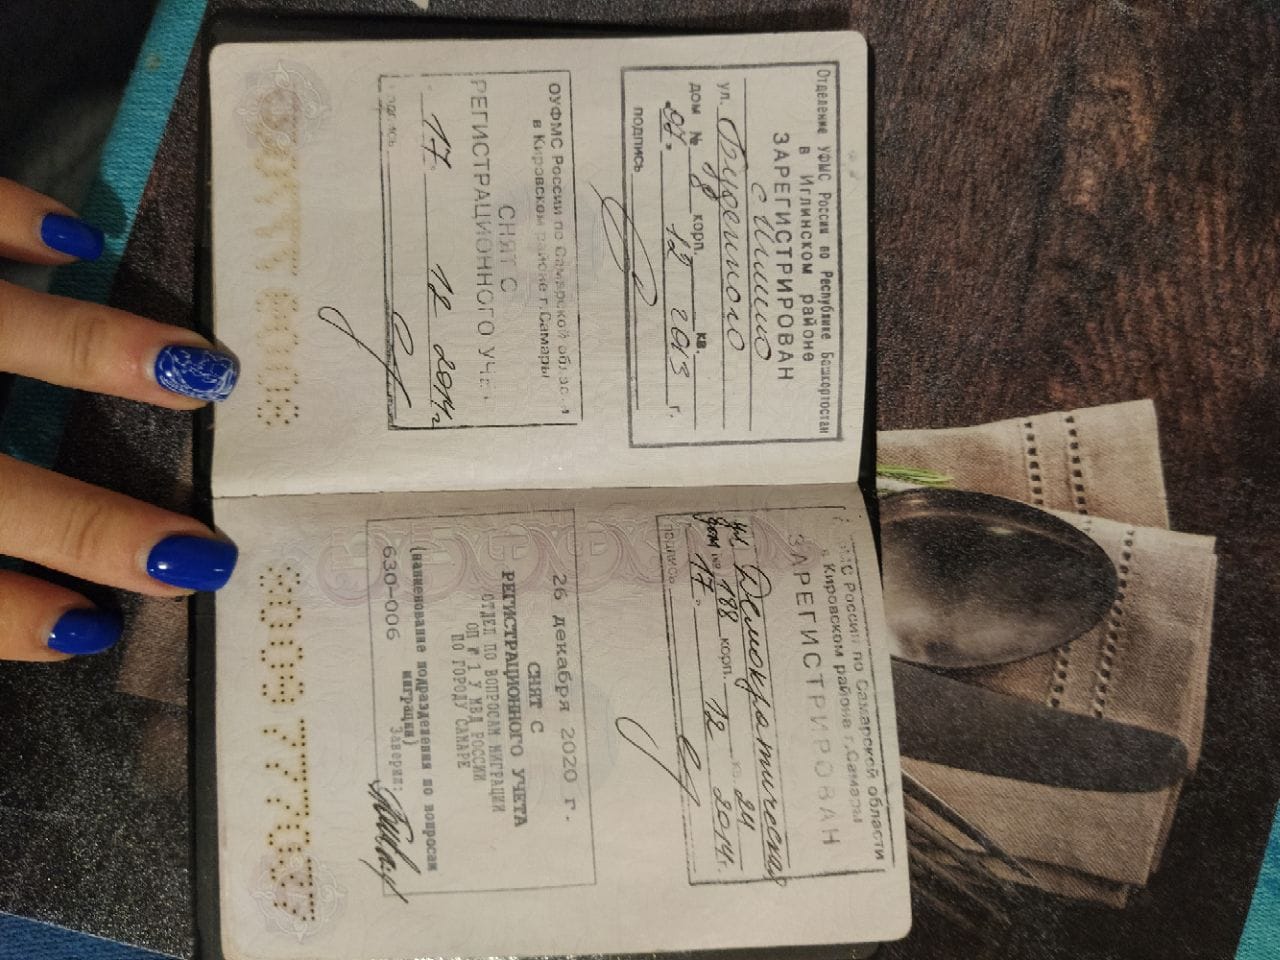 Отделение УФМС России по Республике Башкортостан
в Иглинском районе
ЗАРЕГИСТРИРОВАН
с Иглино
ул. Буденного
дом № 8 корп. кв.
12 2013 г.
подпись
ОУФМС России по Самарской
в Кировском районе г. Самары
СНЯТ С
РЕГИСТРАЦИОННОГО
17. 12 2014г
России по Самарской области
в Кировском районе г. Самары
ЗАРЕГИСТРИРОВАН
ул. Демократическая
дом № 188 корп. кв. 24
17. 12 2014г.
подпись
26 декабря 2020 г.
СНЯТ С
РЕГИСТРАЦИОННОГО УЧЕТА
ОТДЕЛ ПО ВОПРОСАМ МИГРАЦИИ
ОП № 1 У МВД РОССИИ
ПО ГОРОДУ САМАРЕ
(наименование подразделения по вопросам
миграции)
630-006 Заверил: